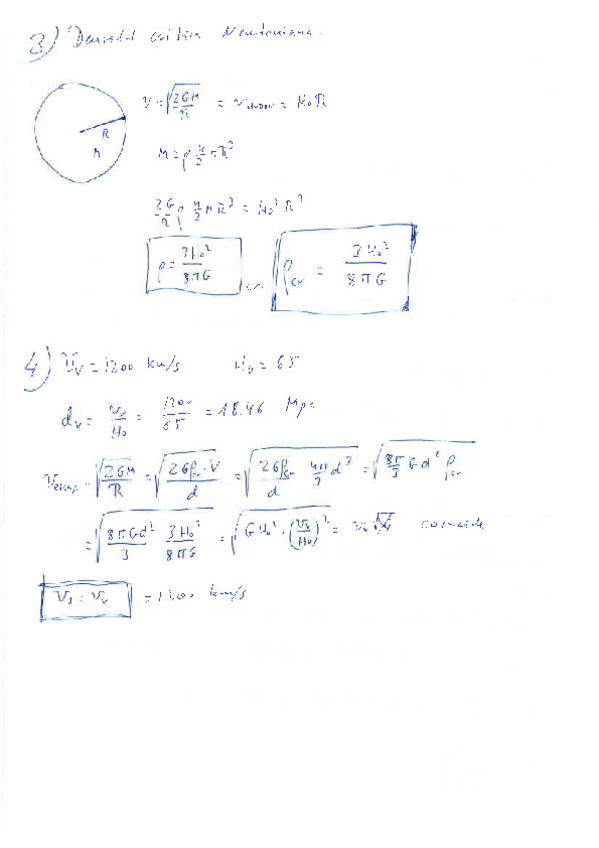 3) Densidad critica Newtoniana.
R
M
V = √(2GM/R) = v_{Hubble} = H₀R
M = ρ 4/3 πR³
2G/R ρ 4/3 πR³ = H₀² R²
ρ = 3H₀²/8πG
ρ_cr = 3H₀²/8πG
4) V_v = 1200 km/s H₀ = 65
d_v = v_v/H₀ = 1200/65 = 18.46 Mpc
V_esc = √(2GM/R) = √(2Gρ_cr·V/d) = √(2Gρ_cr/d 4π/3 d³) = √(8π/3 G d² ρ_cr)
= √(8πGd²/3 3H₀²/8πG) = √(G H₀² · (v_v/H₀)²) = coincide
= v_v = 1200 km/s